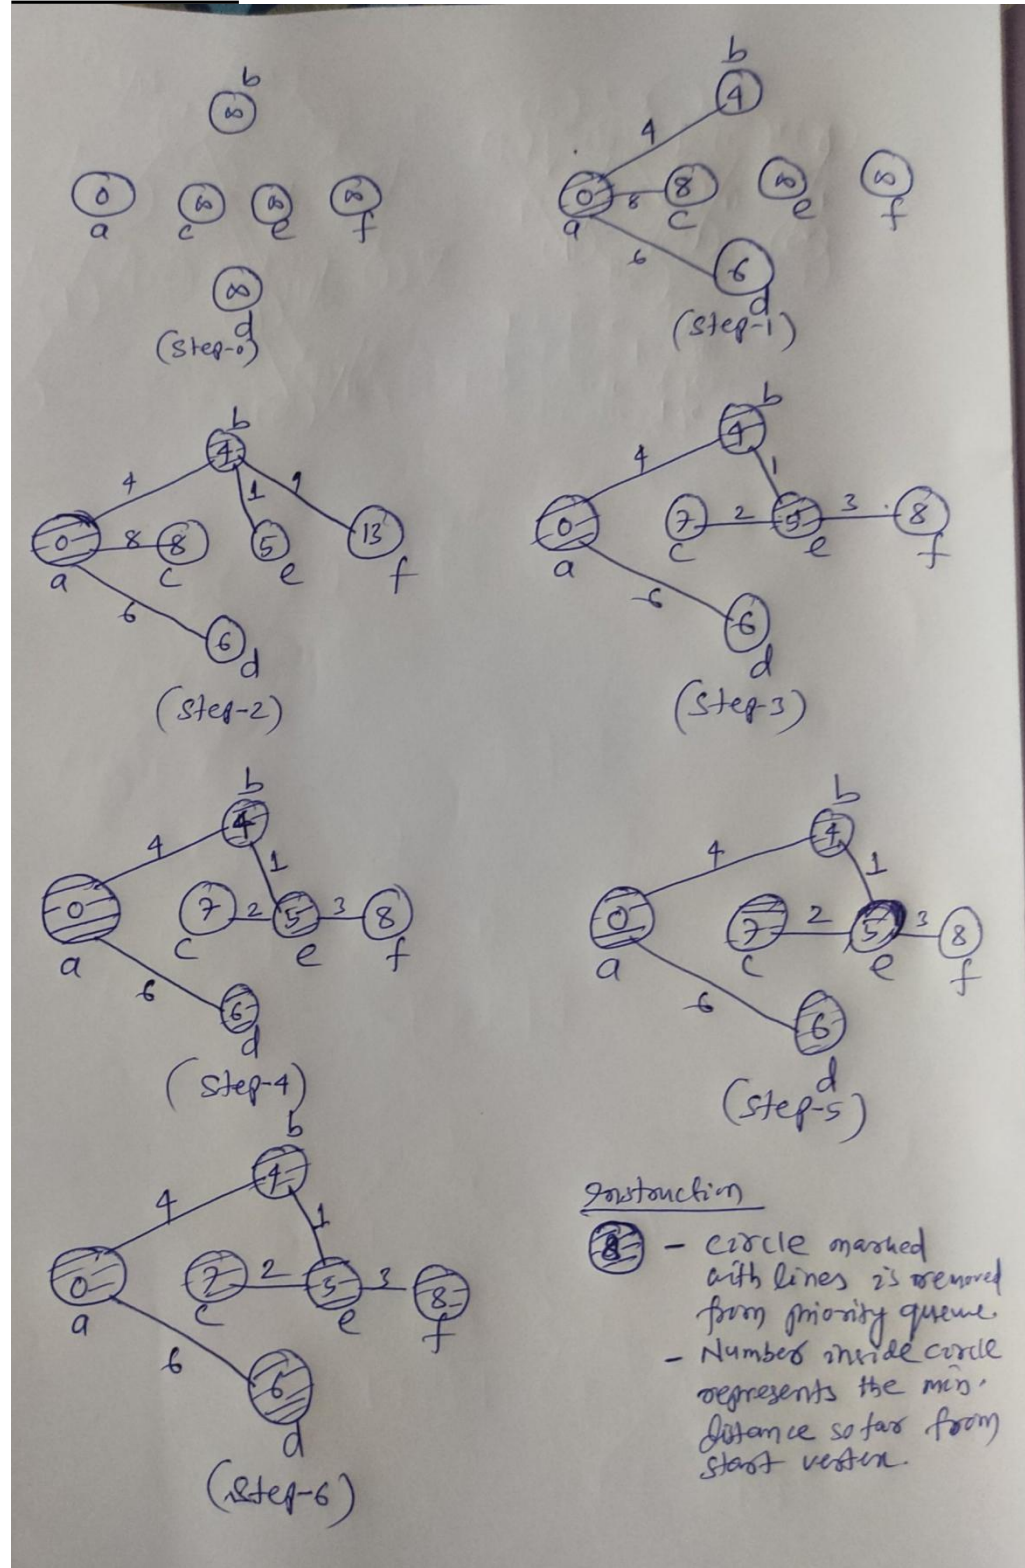 b
∞
0 ∞ ∞ ∞
a c e f
∞
d
(Step-0)
b
4
4
0 8 8 ∞ ∞
a c e f
6
6
d
(Step-1)
b
4
4
1 9
0 8 8 5 13
a c e f
6
6
d
(Step-2)
b
4
4
1
0 7 2 5 3 8
a c e f
6
6
d
(Step-3)
b
4
4
1
0 7 2 5 3 8
a c e f
6
6
d
(Step-4)
b
4
4
1
0 7 2 5 3 8
a c e f
6
6
d
(Step-5)
b
4
4
1
0 7 2 5 3 8
a c e f
6
6
d
(Step-6)
Instruction
8 - circle marked
with lines is removed
from priority queue.
- Number inside circle
represents the min.
distance so far from
start vertex.